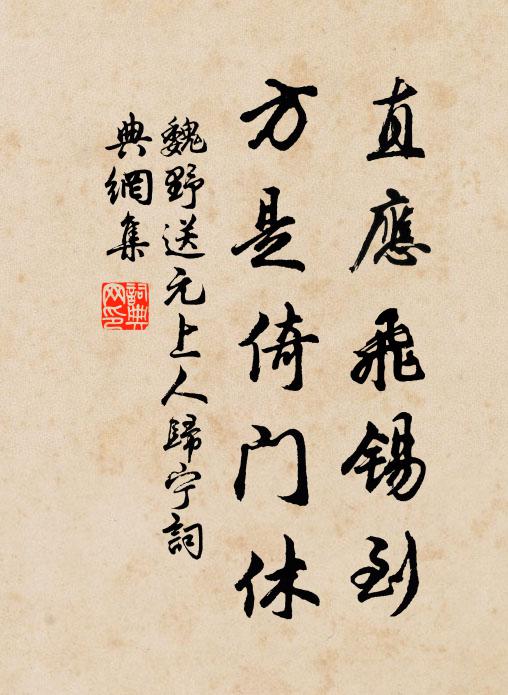 直應飛錫到
方是倚門休
魏野送元上人歸宁詞
典網集
詞典
网印